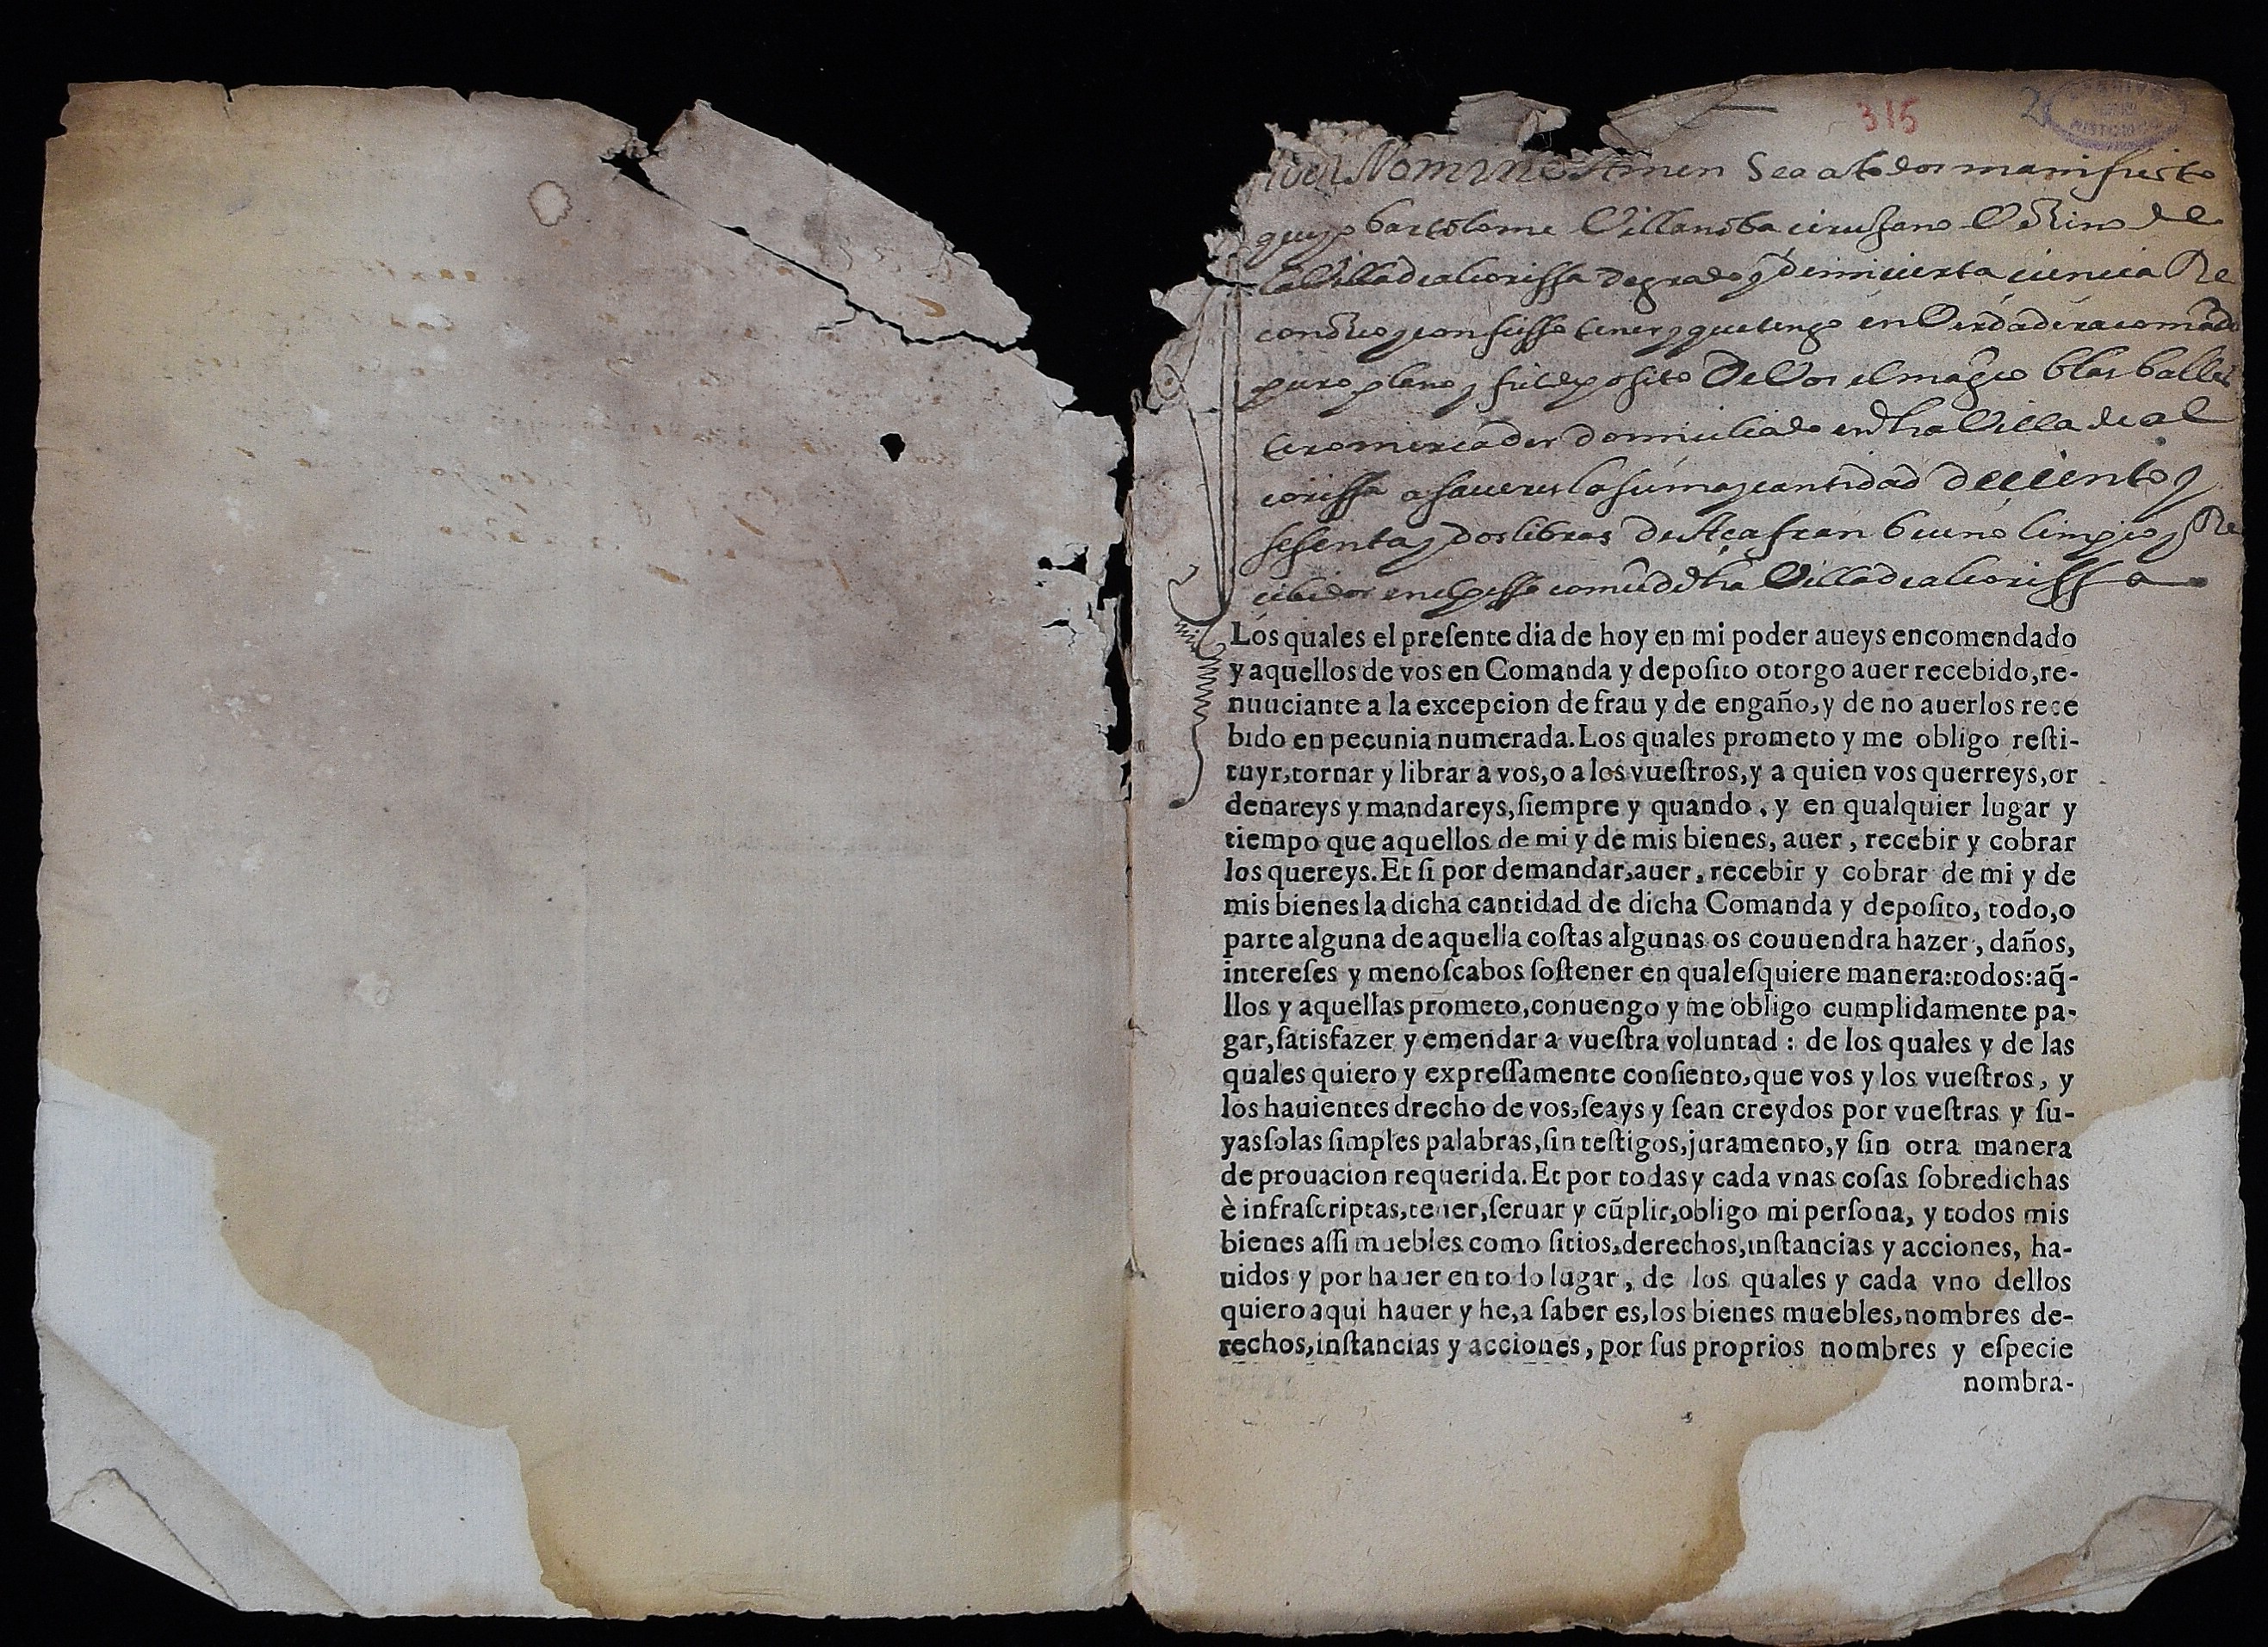 315
Dei Nomine Amen Sea a todos manifiesto
que yo bartolome Villanoba cirujano Veçino de
la Villa de alcorissa de grado y de mi cierta ciencia Re
conozco y confiesso tener y que tengo en Verdadera comāda
puro pleno y fiel deposito De Vos el mag.co blas balles
tero mercader domiciliado en dha Villa de al
corissa a saver es la suma y cantidad de ciento y
sesenta y dos libras de Açafran bueno limpio y Re
cibidor en el pesso comū de dha Villa de alcorissa
Los quales el preſente dia de hoy en mi poder aueys encomendado
y aquellos de vos en Comanda y depoſito otorgo auer recebido, re-
nuuciante a la excepcion de frau y de engaño, y de no auerlos rece
bido en pecunia numerada. Los quales prometo y me obligo reſti-
tuyr, tornar y librar a vos, o a los vueſtros, y a quien vos querreys, or
denareys y mandareys, ſiempre y quando, y en qualquier lugar y
tiempo que aquellos de mi y de mis bienes, auer, recebir y cobrar
los quereys. Et ſi por demandar, auer, recebir y cobrar de mi y de
mis bienes la dicha cantidad de dicha Comanda y depoſito, todo, o
parte alguna de aquella coſtas algunas os couuendra hazer, daños,
intereſes y menoſcabos ſoſtener en qualeſquiere manera: todos: aq̃-
llos y aquellas prometo, conuengo y me obligo cumplidamente pa-
gar, ſatisfazer y emendar a vueſtra voluntad : de los quales y de las
quales quiero y expreſſamente conſiento, que vos y los vueſtros, y
los hauientes drecho de vos, ſeays y ſean creydos por vueſtras y ſu-
yas ſolas ſimples palabras, ſin teſtigos, juramento, y ſin otra manera
de prouacion requerida. Et por todas y cada vnas coſas ſobredichas
è infraſcriptas, tener, ſeruar y cũplir, obligo mi perſona, y todos mis
bienes aſſi muebles como ſitios, derechos, inſtancias y acciones, ha-
uidos y por hauer en todo lugar, de los quales y cada vno dellos
quiero aqui hauer y he, a ſaber es, los bienes muebles, nombres de-
rechos, inſtancias y acciones, por ſus proprios nombres y eſpecie
nombra-